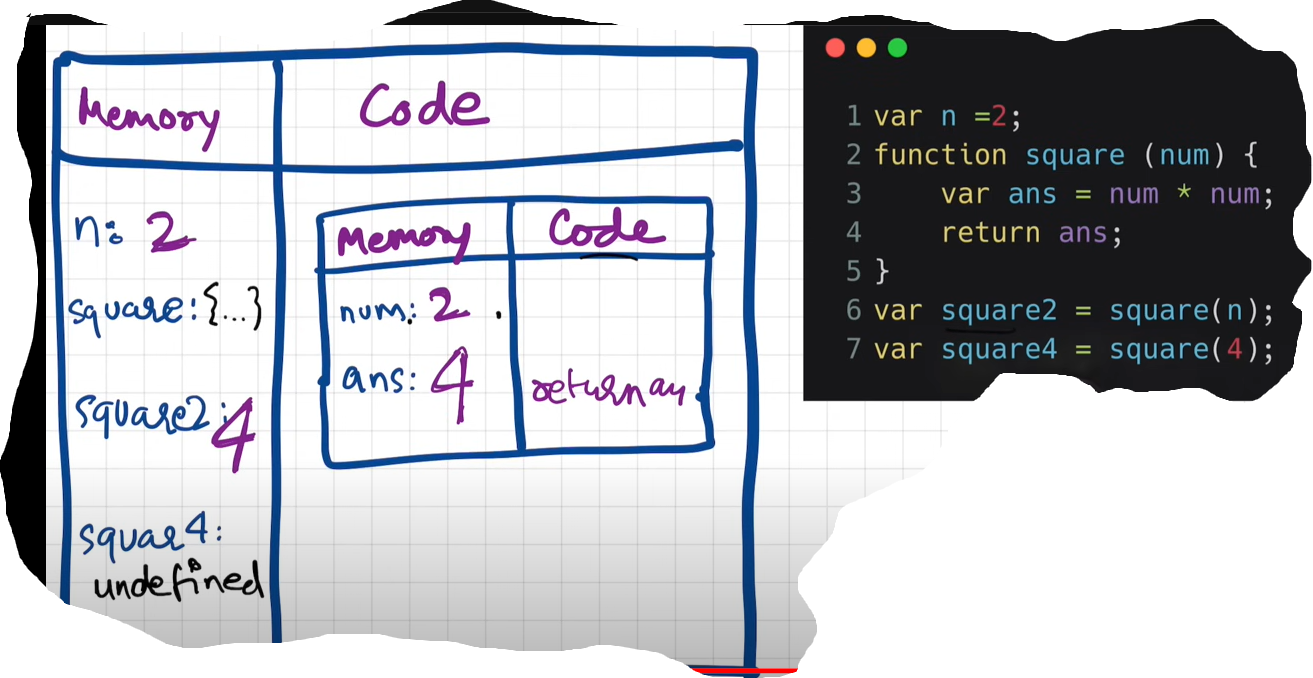 Memory
Code
n: 2
square: {...}
square2: 4
squar4:
undefined
Memory
Code
num: 2
ans: 4
return an
1 var n =2;
2 function square (num) {
3     var ans = num * num;
4     return ans;
5 }
6 var square2 = square(n);
7 var square4 = square(4);